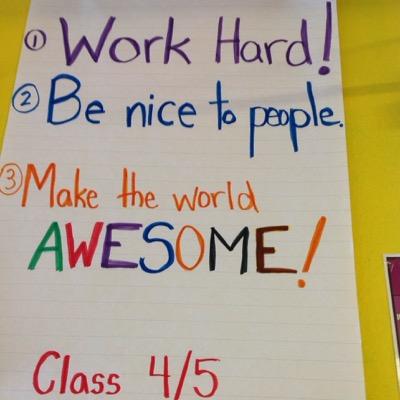 ① Work Hard!
② Be nice to people.
③ Make the world
AWESOME!
Class 4/5